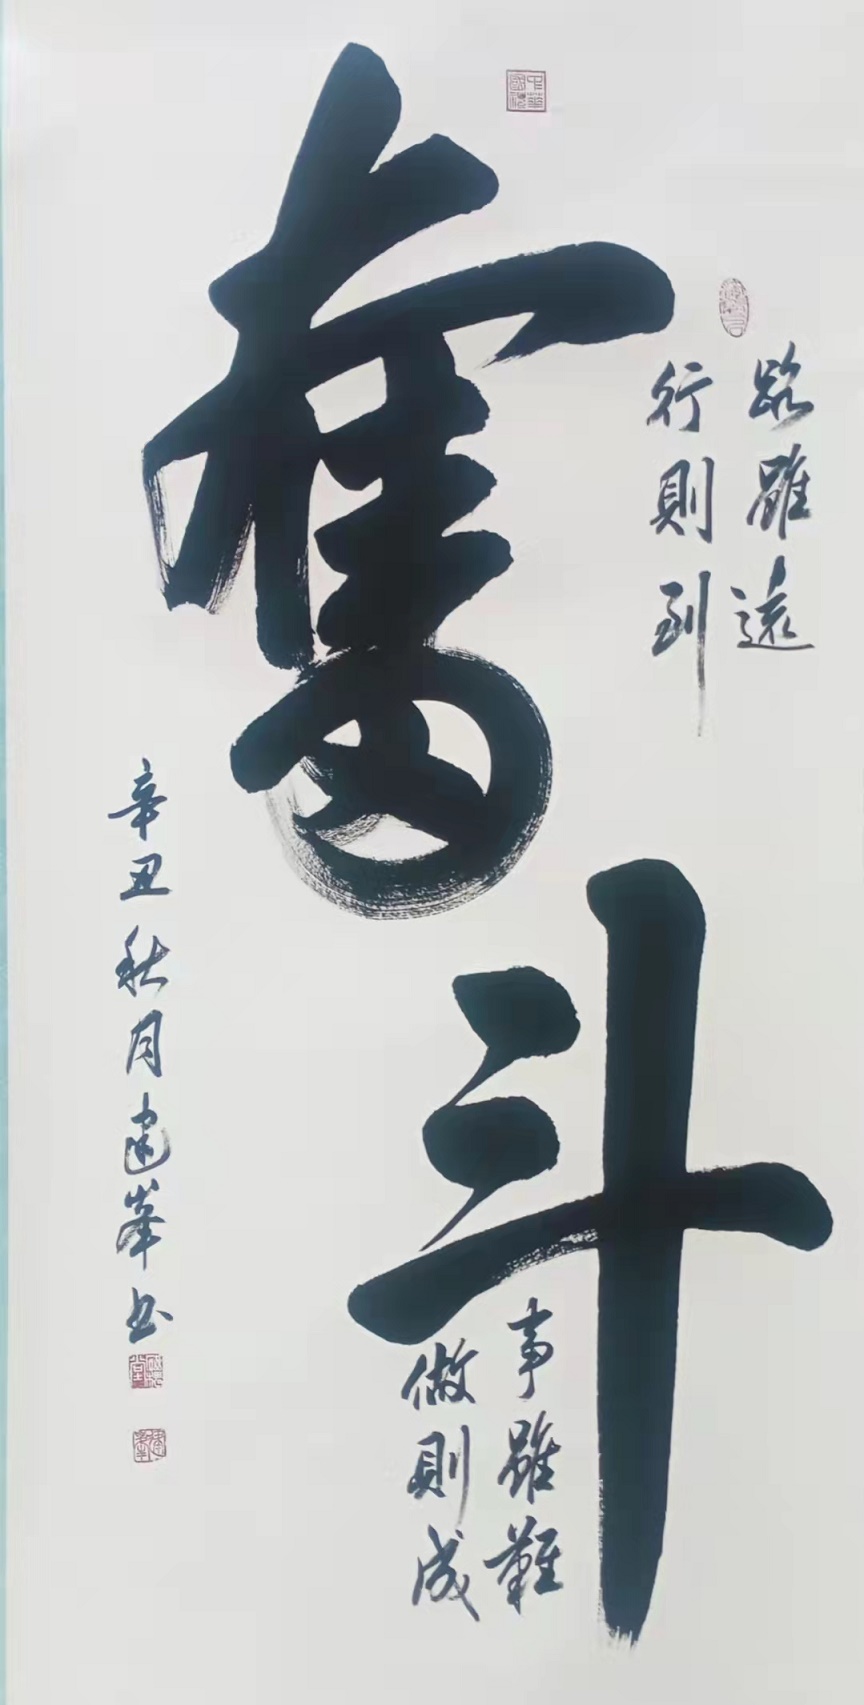 奮斗
路雖遠
行則到
事雖難
做則成
辛丑秋月建峯书